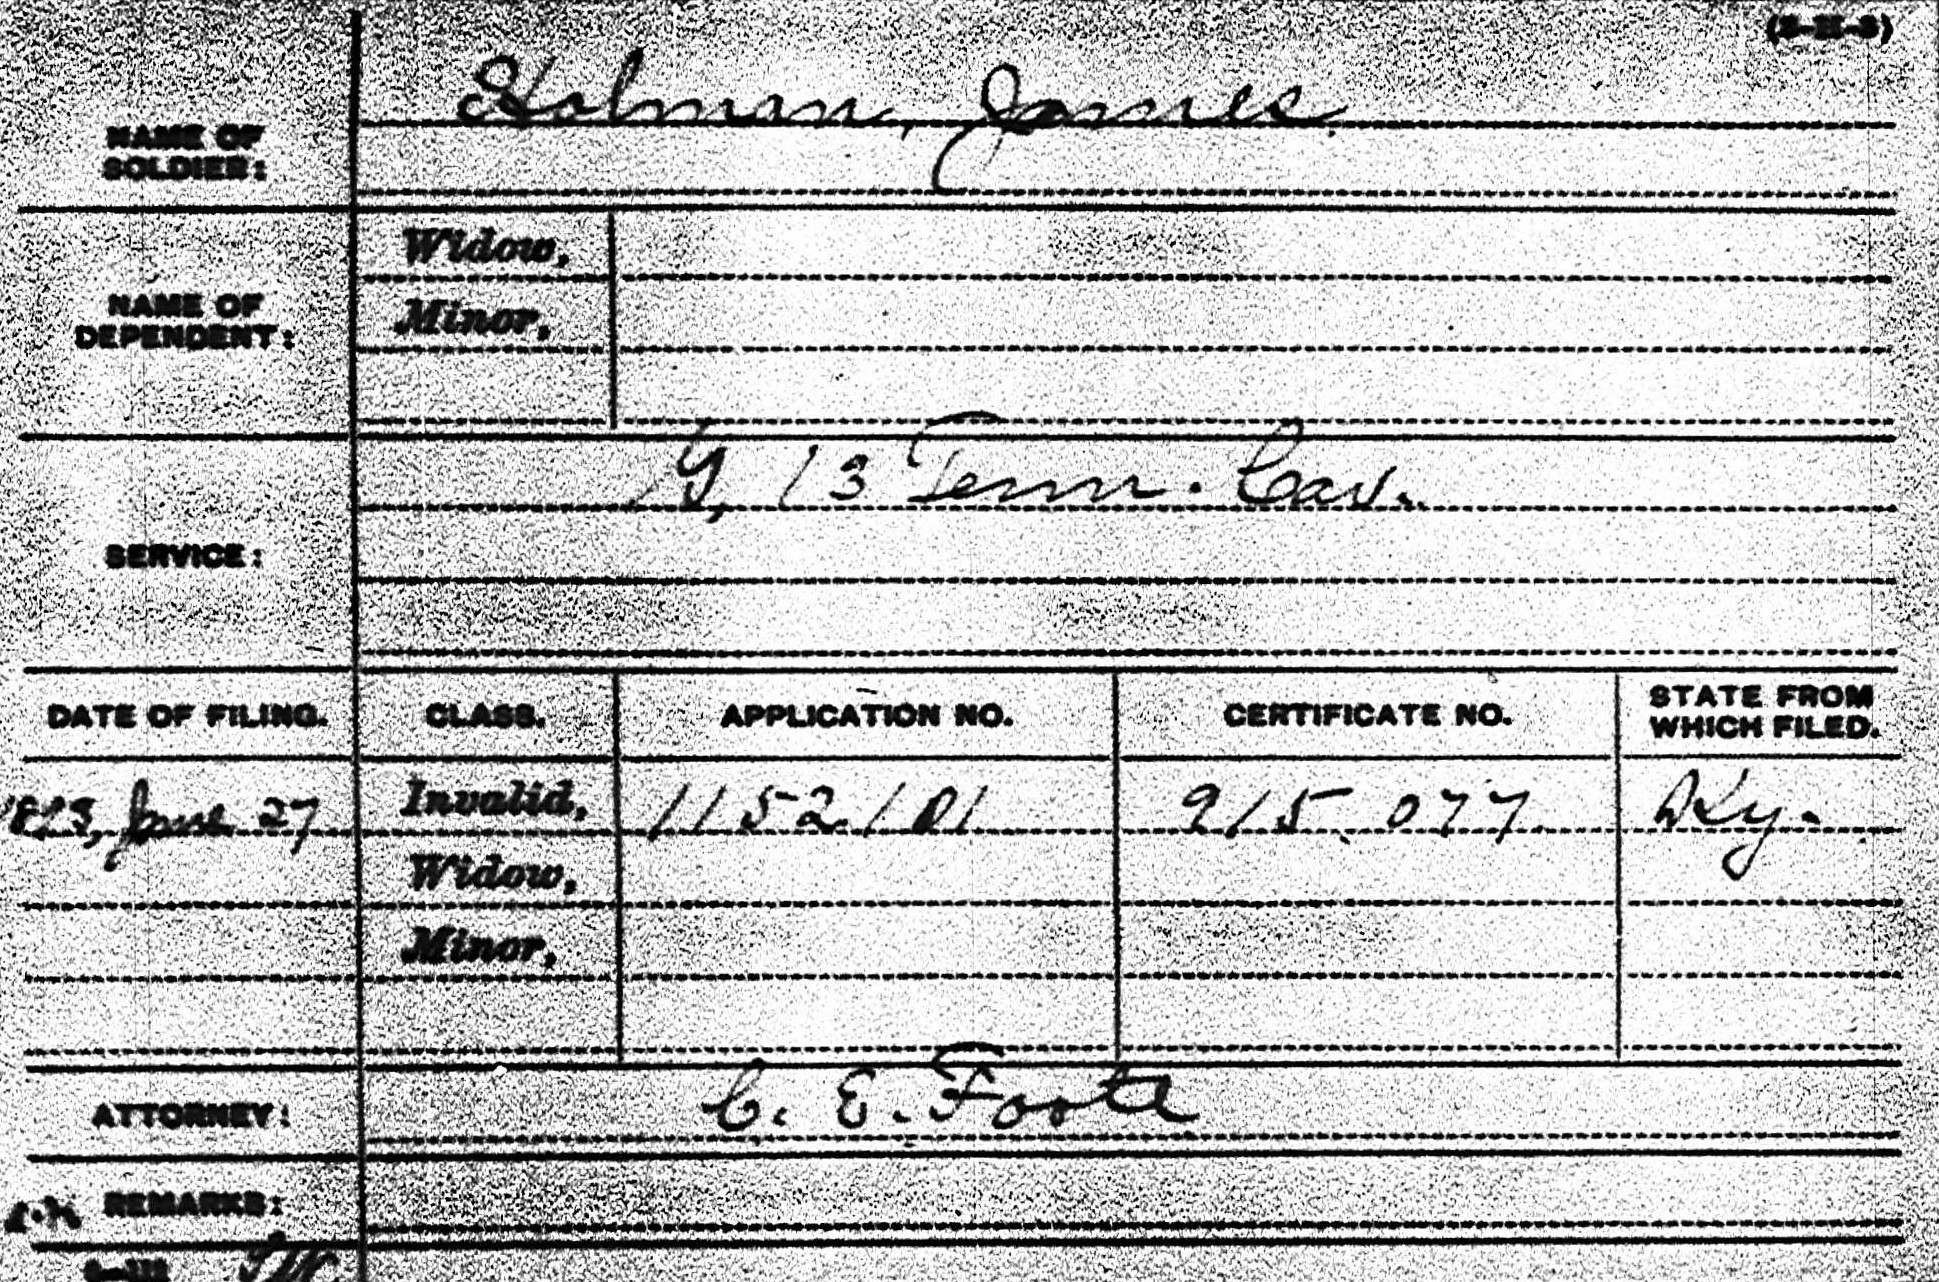 (3-II-3)
Holman, James.
NAME OF
SOLDIER:
Widow,
NAME OF
DEPENDENT:
Minor,
G, 13 Tenn. Cav.
SERVICE:
DATE OF FILING. CLASS. APPLICATION NO. CERTIFICATE NO. STATE FROM
WHICH FILED.
June 27 Invalid, 1152101 915,077 Ky.
Widow,
Minor,
ATTORNEY: C. E. Foote
REMARKS: